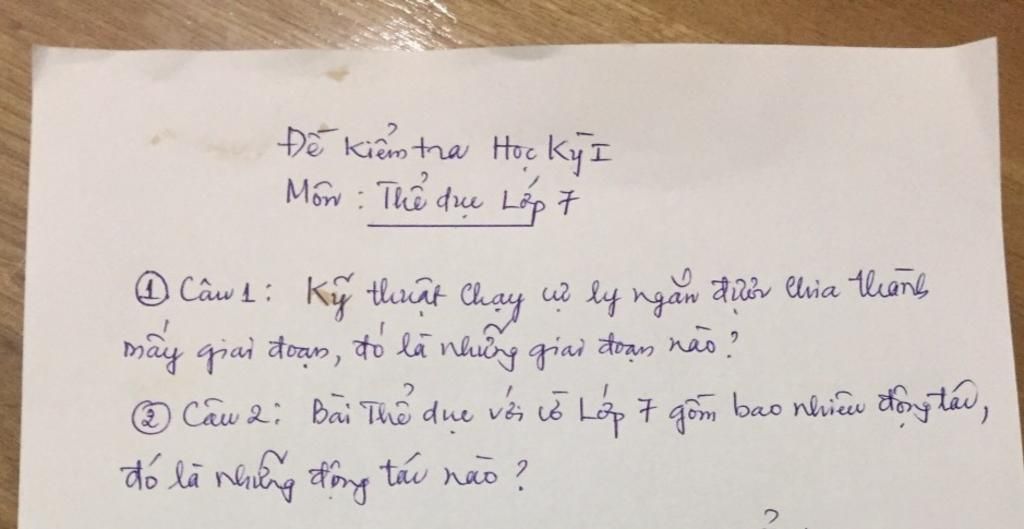 Đề kiểm tra Học Kỳ I
Môn : Thể dục Lớp 7
① Câu 1 : Kỹ thuật chạy cự ly ngắn được chia thành
mấy giai đoạn, đó là những giai đoạn nào ?
② Câu 2 : Bài Thể dục với cờ Lớp 7 gồm bao nhiêu động tác,
đó là những động tác nào ?